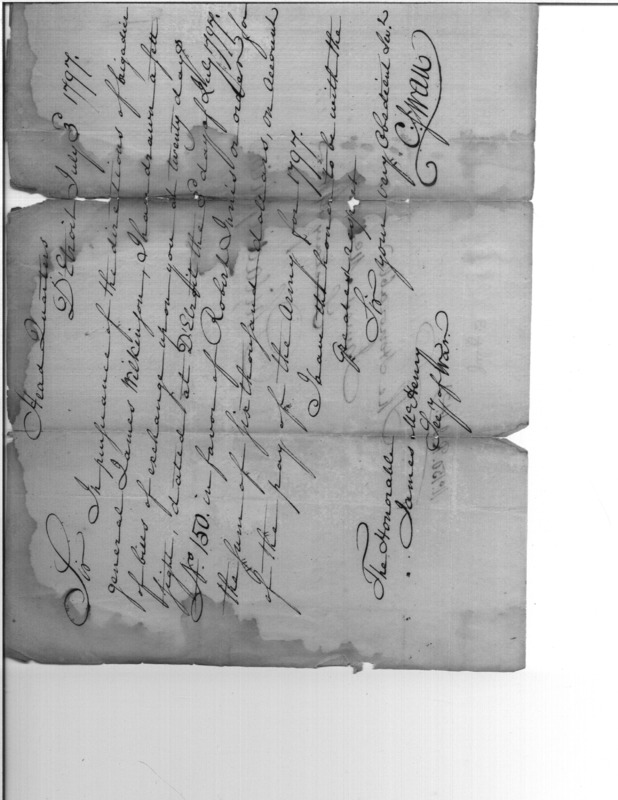 Head Quarters
D'Etroit July 3 1797.
Sir
In pursuance of the directions of brigadier
general James Wilkinson, I have drawn a sett
of bills of exchange upon you at twenty days
sight, dated at D'Etroit the 3d day of July 1797.
No 150. in favor of Robert or order for
the sum of six thousand dollars, on account
of the pay of the army for 1797.
I have the honor to be with the
greatest respect
Sir your very Obedient Servt
C Swan
The Honorable
James McHenry
Secy of War.